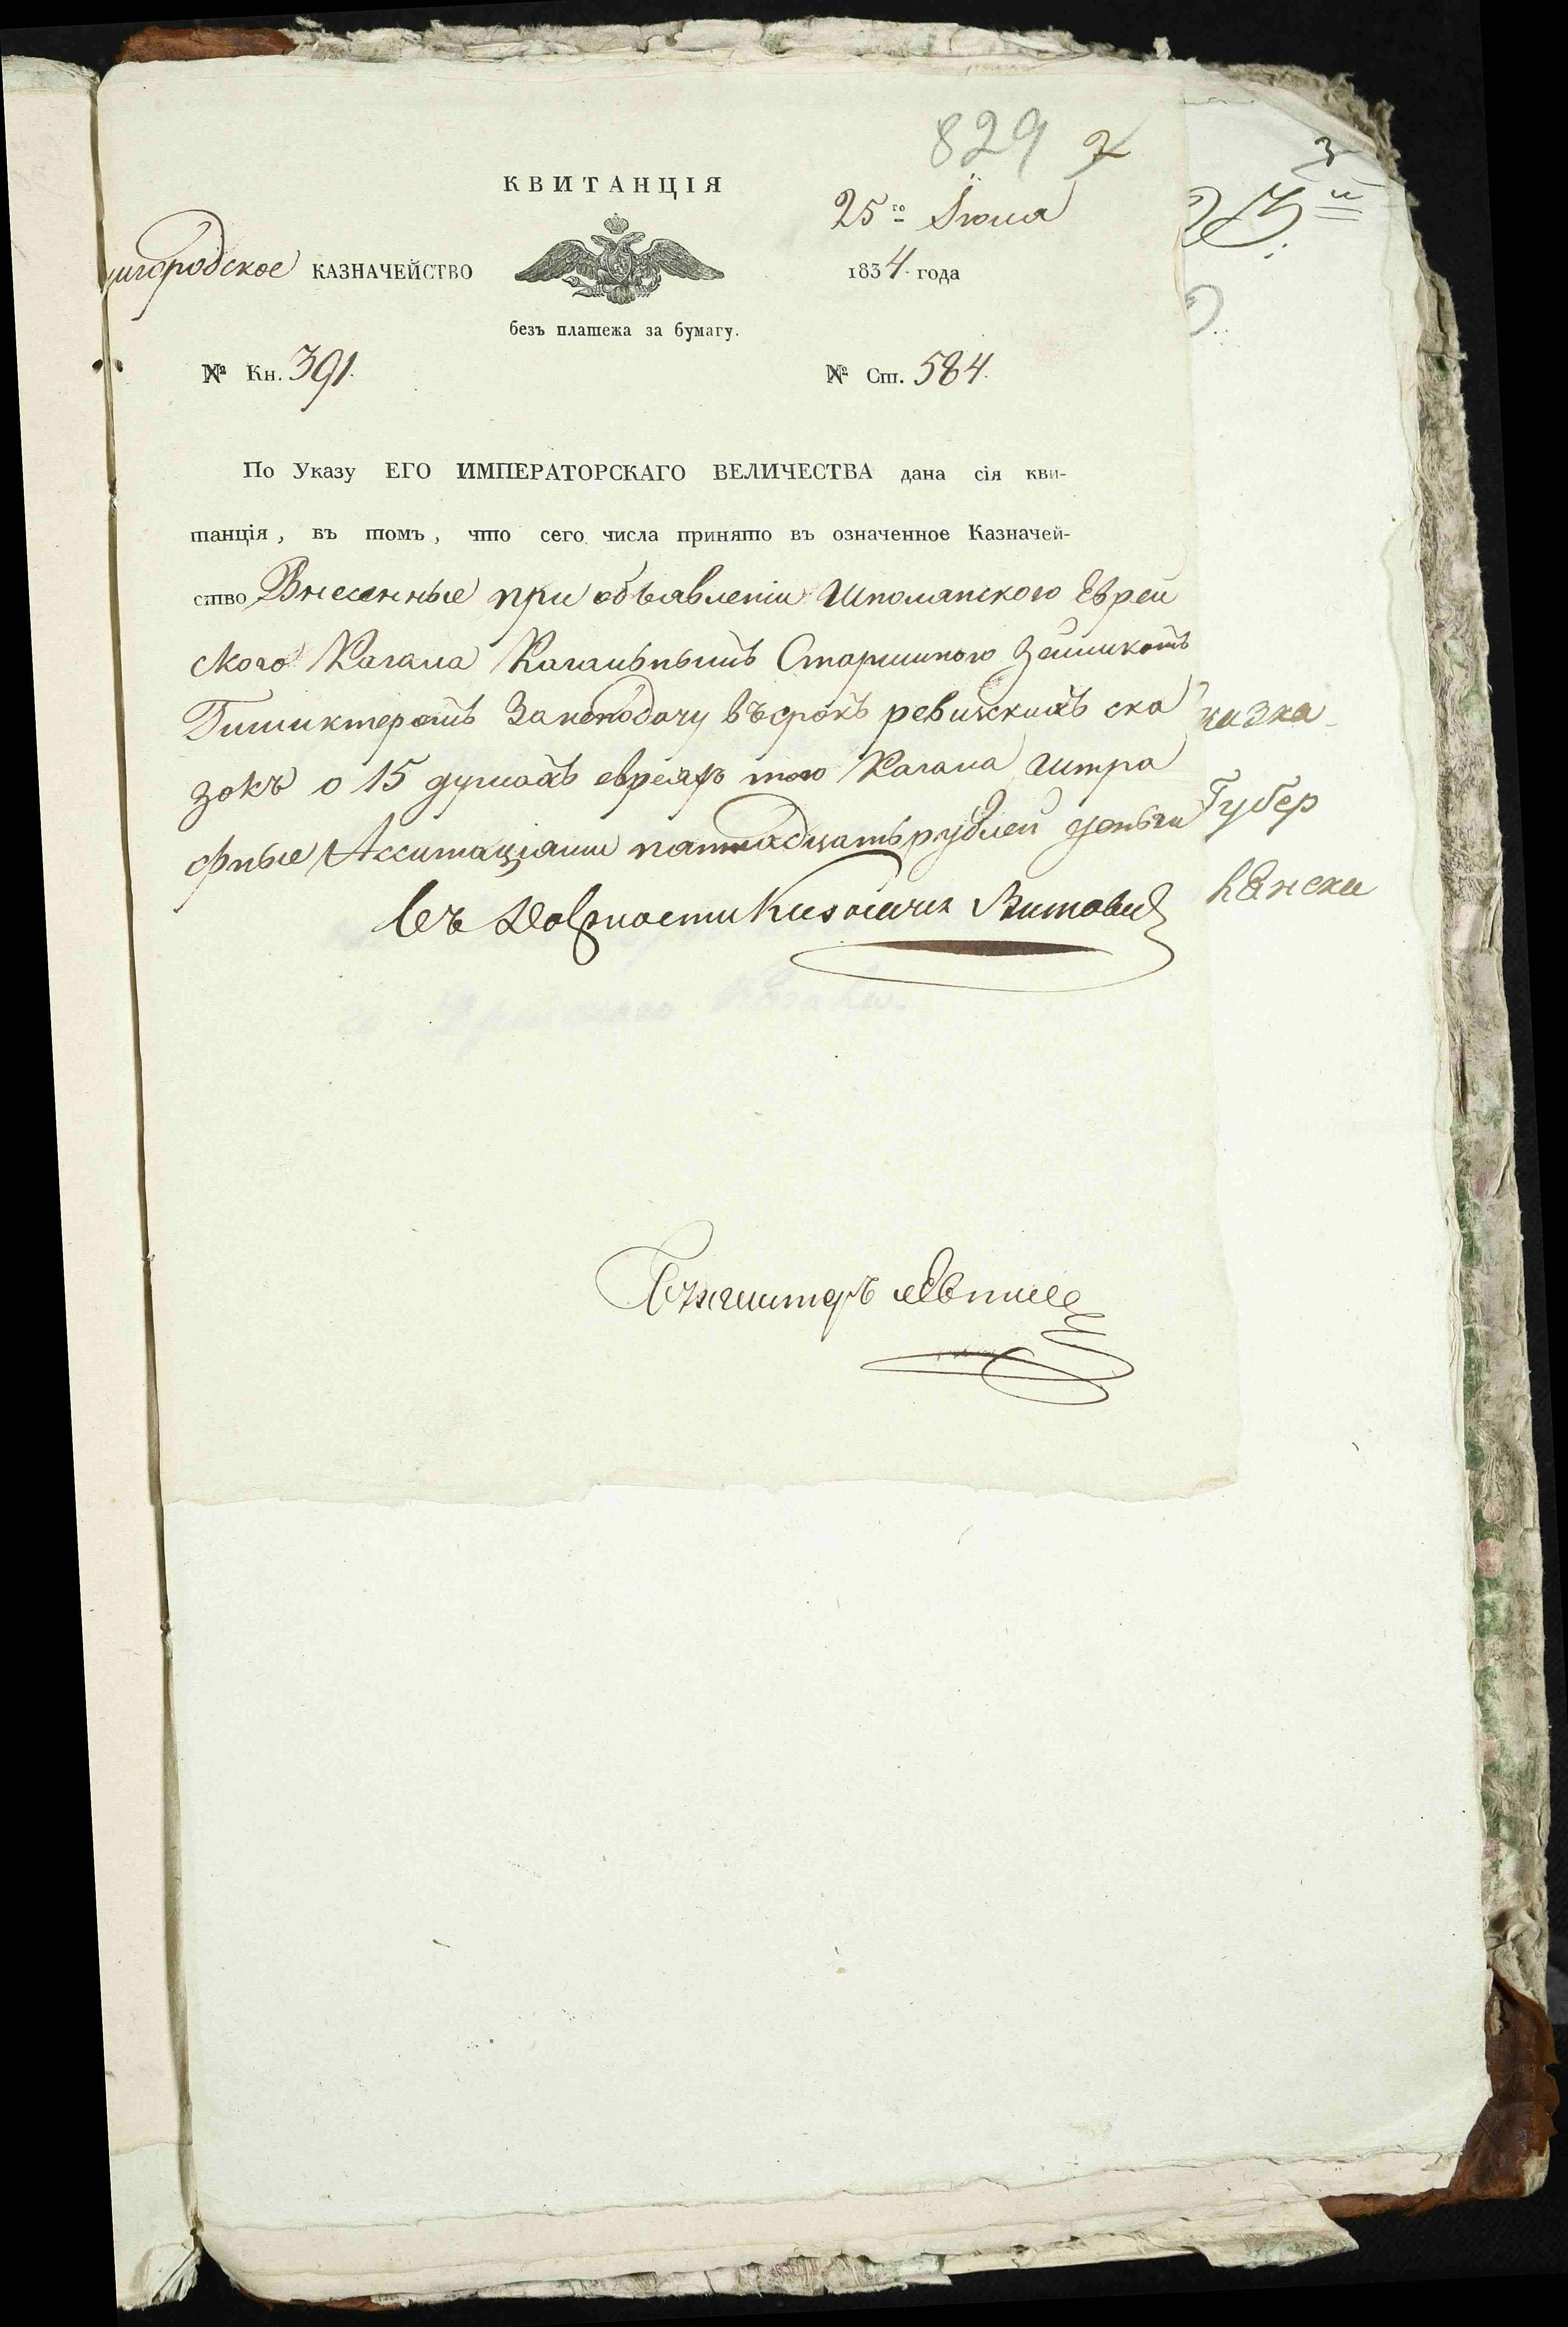 829 7
КВИТАНЦІЯ
25го Іюня
шгородское КАЗНАЧЕЙСТВО
1834. года
безъ платежа за бумагу.
№ Кн. 391.
№ Ст. 584.
По Указу ЕГО ИМПЕРАТОРСКАГО ВЕЛИЧЕСТВА дана сія кви-
танція, въ томъ, что сего числа принято въ означенное Казначей-
ство Внесенные при объявленіи Шполанского Еврей
ского Кагала Кагальнымъ Старшиною
За неподачу въ срокъ ревизскихъ ска
зокъ о 15 душахъ евреяхъ того Кагала Штра
фные Ассигнаціями пятнадцать рублей деньги
казка
Губер